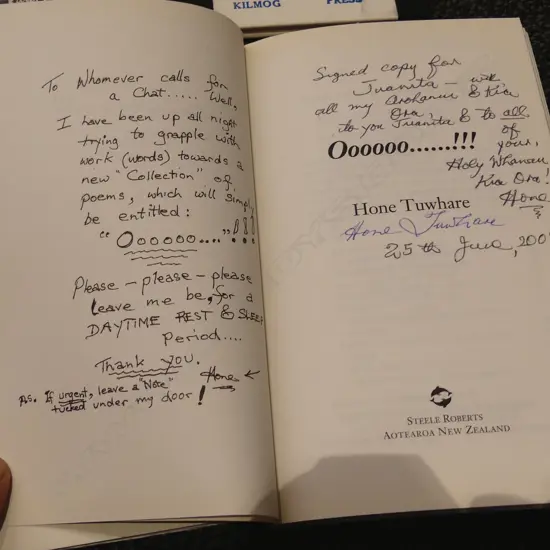 KILMOG PRESS
To Whomever calls for
a Chat..... Well,
I have been up all night
trying to grapple with
work (words) towards a
new "Collection" of
poems, which will simply
be entitled:
"Oooooo....."!!!
Please – please – please
leave me be, for a
DAYTIME REST & SLEEP
period....
Thank you.
Hone
PS. If urgent, leave a "Note"
tucked under my door!
Signed copy for
Juanita –
all my Arohanui & Kia
Ora,
to you Juanita & to all
of
Oooooo......!!!
your,
Holy Whanau
Kia Ora!
Hone
Hone Tuwhare
Hone Tuwhare
25th June, 200
STEELE ROBERTS
AOTEAROA NEW ZEALAND